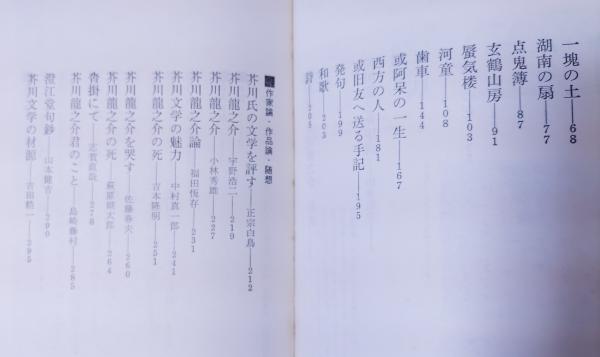 一塊の土――68
湖南の扇――77
点鬼簿――87
玄鶴山房――91
蜃気楼――103
河童――108
歯車――144
或阿呆の一生――167
西方の人――181
或旧友へ送る手記――195
発句――199
和歌――203
詩――205
作家論・作品論・随想
芥川氏の文学を評す――正宗白鳥――212
芥川龍之介――宇野浩二――219
芥川龍之介――小林秀雄――227
芥川龍之介論――福田恆存――231
芥川文学の魅力――中村真一郎――241
芥川龍之介の死――吉本隆明――251
芥川龍之介を哭す――佐藤春夫――260
芥川龍之介の死――萩原朔太郎――264
沓掛にて――志賀直哉――278
芥川龍之介君のこと――島崎藤村――285
澄江堂句鈔――山本健吉――290
芥川文学の材源――吉田精一――295